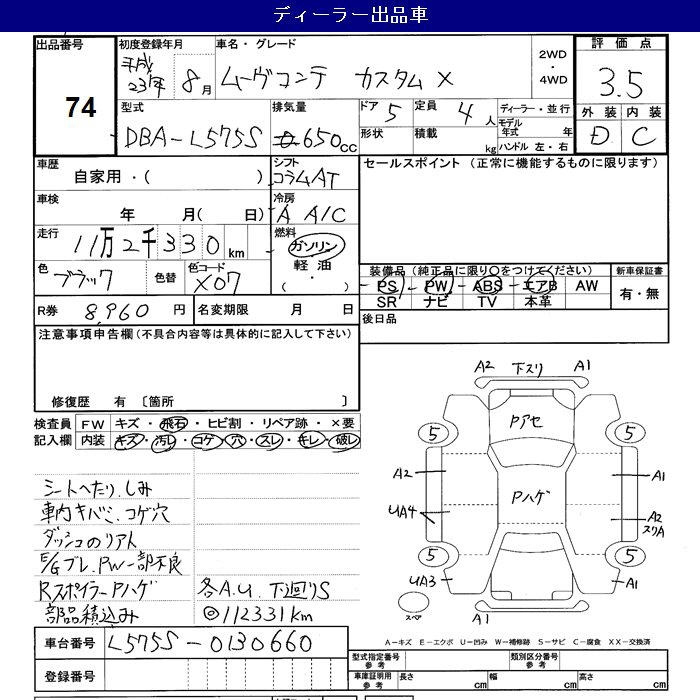 ディーラー出品車
出品番号 初度登録年月 車名・グレード 2WD・4WD 評価点
74
平成23年 8月 ムーヴコンテ カスタム X
3.5
型式 排気量 ドア 5 定員 4人 ディーラー・並行
DBA-L575S 650cc
形状 積載 kg モデル年式 年
ハンドル 左・右
外装 内装
D C
車歴 シフト セールスポイント (正常に機能するものに限ります)
自家用・( ) コラムAT
車検 冷房
年 月( 日) A A/C
走行 燃料
11万2千330km ガソリン
軽油
・( )
色 色替 色コード
ブラック X07
装備品 (純正品に限り○をつけてください) 新車保証書
PS PW ABS エアB AW 有・無
SR ナビ TV 本革
R券 8,960円 名変期限 月 日
後日品
注意事項申告欄(不具合内容等は具体的に記入して下さい)
修復歴 有 〔箇所 〕
検査員記入欄 FW キズ・飛石・ヒビ割・リペア跡・×要
内装 キズ・汚レ・コゲ・穴・スレ・キレ・破レ
シートへたり、しみ
車内キバミ、コゲ穴
ダッシュのリアト
E/Gブレ、PW一部不良
RスポイラーPハゲ 各A.U. 下廻りS
部品積込み ◎112331km
車台番号 L575S-0130660
登録番号
A2 下スリ A1
Pアセ
5 5
A2 A1
Pハゲ
UA4 A2
スリA
5 5
UA3 A1
スペア
A1
A-キズ E-エクボ U-凹み W-補修跡 S-サビ C-腐食 XX-交換済
型式指定番号 参考 類別区分番号 参考
車庫証明用 参考 長さ cm 幅 cm 高さ cm